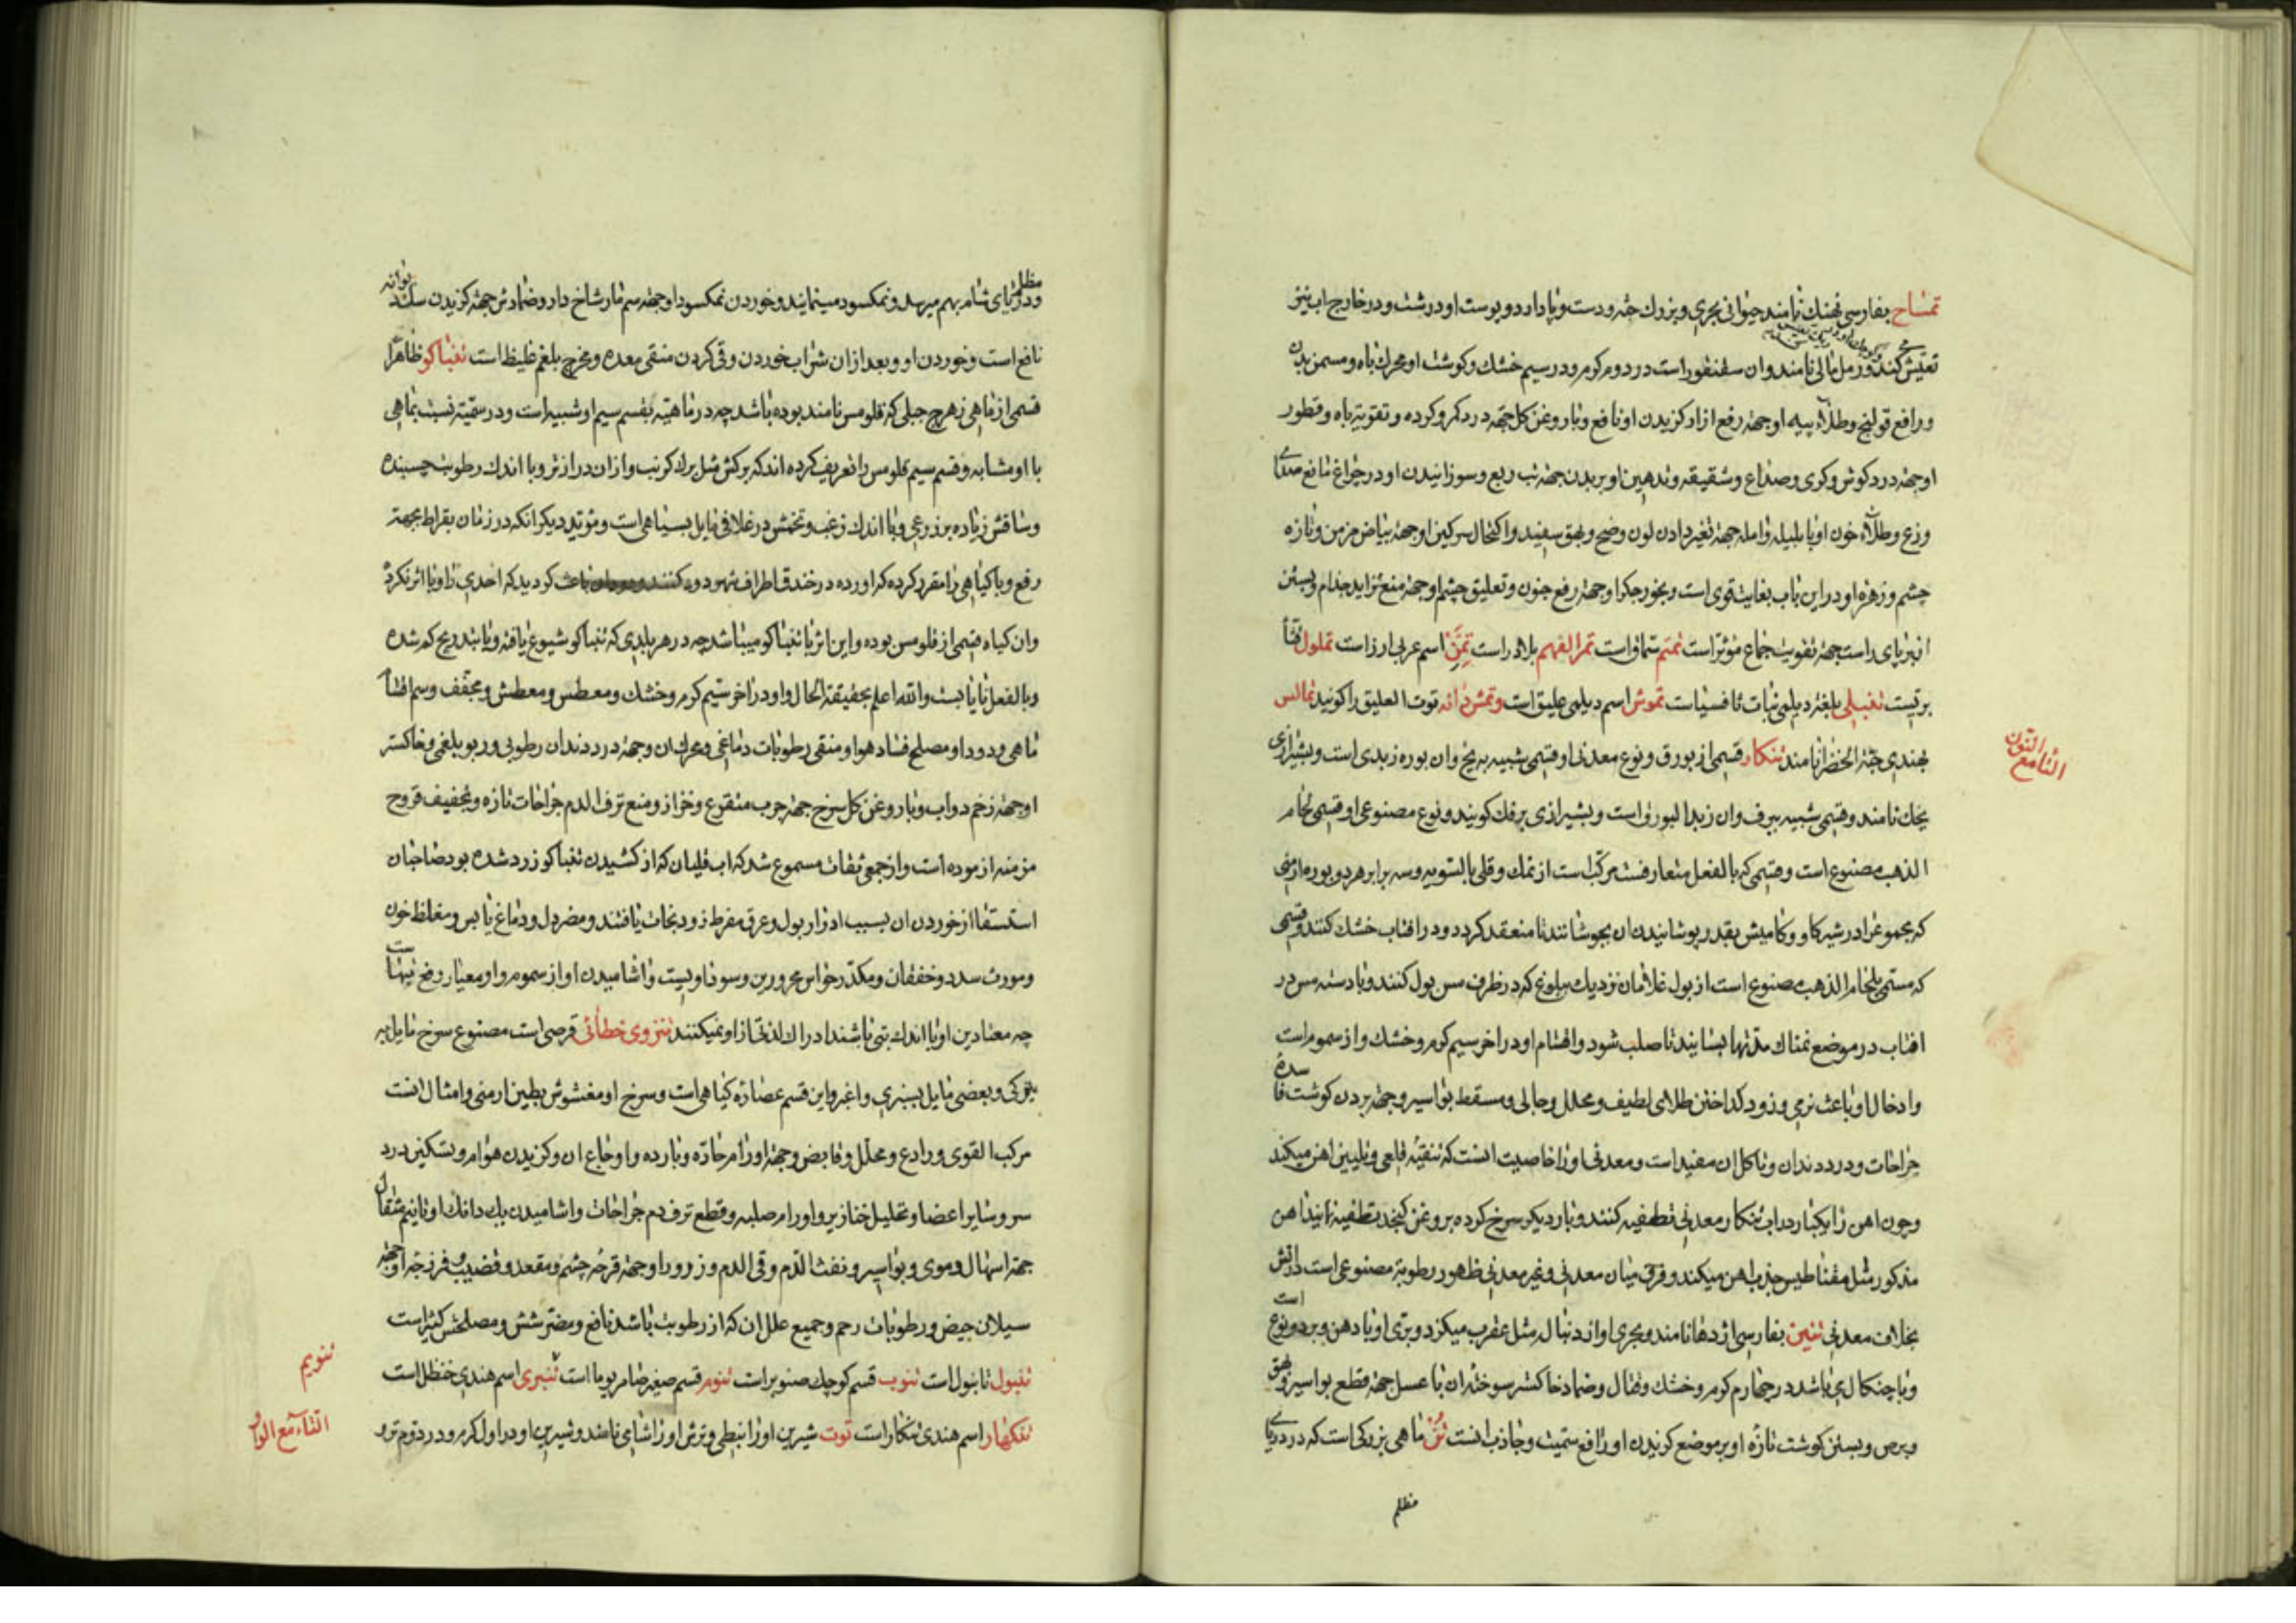 تمساح بفارسی نهنك نامند حیوانی بحری و بزرك جثه و دست و پا دارد و پوست او درشت و در خارج اب نیز
تعیش کند و رمل مالی نامند وان سقنقور است در دوم کرم و در سیم خشك و کوشت او محرك باه و مسمن بدن
و رافع قولنج و طلاء پیه او جهة رفع ازار کزیدن او نافع و با روغن کل جهة درد کمر و کرده و تقویة باه و قطور
او جهة درد کوش و کری و صداع و شقیقه و تدهین او بر بدن جهة تب ربع و سوزانیدن او در چراغ مانع صدای
وزغ و طلاء خون او با هلیله و امله جهة تغیر دادن لون وضح و بهق سفید و اکتحال سرکین او جهة بیاض مزمن و تازه
چشم و زهره او در این باب بغایت قوی است و بخور جکر او جهة رفع جنون و تعلیق چشم او جهة منع تزاید جذام و بستن
انبر پای راست جهة تقویت جماع مؤثر است تمتم سماق است تمر الفهم بلادر است تمن اسم عربی ارز است تملول قثا
بریست تمبلی بلغة دیلمی نبات تافسیاست تموش اسم دیلمی علیق است و تمش دانه توت العلیق را کویند تمالس
بهندی حبة الخضرا نامند تنکار قسمی از بورق و نوع معدنی او قسمی شبیه به یخ وان بوره زبدی است و بشیرازی
یخك نامند و قسمی شبیه ببرف وان زبد البورق است و بشیرازی برفك کویند و نوع مصنوعی او قسمی لحام
الذهب مصنوع است و قسمی که بالفعل متعارفست مرکب است از نمك و قلی بالسویه و سه برابر هر دو بوره ارمنی
که مجموع را در شیر کاو و کامیش بقدر پوشانیدن ان بجوشانند تا منعقد کردد و در افتاب خشك کنند و قسمی
که مسمی بلحام الذهب مصنوع است از بول غلامان نزدیك ببلوغ که در ظرف مس بول کنند و با دسته مس در
افتاب در موضع نمناك مدتها بسایند تا صلب شود و اقسام او در اخر سیم کرم و خشك و از سموم است
و ادخال او باعث نرمی و زود کداختن طلا و لطیف و محلل و جالی و مسقط بواسیر و جهة بردن کوشت فاسده
جراحات و درد دندان و تاکل ان مفید است و معدنی او را خاصیت انست که تنقیه قلعی و تلیین اهن میکند
و چون اهن را یکبار در اب تنکار معدنی تطفیه کنند و بار دیکر سرخ کرده بروغن کنجد تطفیه نمایند اهن
مذکور مثل مقناطیس جذب اهن میکند و فرق میان معدنی و غیر معدنی ظهور رطوبة مصنوعی است در اتش
بخلاف معدنی تنین بفارسی اژدها نامند و بحری او از دنبال مثل عقرب میکزد و بری او با دهن و بر دو نوع است
و با چنکال می باشد در چهارم کرم و خشك و قتال و ضماد خاکستر سوخته ان با عسل جهة قطع بواسیر و بهق
و برص و بستن کوشت تازه او بر موضع کزیدن او رافع سمیت و جاذب انست تن ماهی بزرکی است که در دریای
مظلم
التاء مع النون
مظلم و دریای شام بهم میرسد و نمکسود مینمایند و خوردن نمکسود او جهة سم مار شاخ دار و ضمادش جهة کزیدن سك دیوانه
نافع است و خوردن او و بعد از ان شراب خوردن و قی کردن منقی معده و مخرج بلغم غلیظ است تنباکو ظاهرا
قسمی از ماهی زهرج جبلی که قلومس نامند بوده باشد چه در ماهیة بقسم سیم او شبیه است و در سمیة نسبت بماهی
با او مشابه و قسم سیم قلومس را تعریف کرده اند که برکش مثل برك کرنب و از ان درازتر و با اندك رطوبت چسبنده
و ساقش زیاده بر ذرعی و با اندك زغب و تخمش در غلافی مایل بسیاهی است و مؤید دیکر انکه در زمان بقراط بجهة
رفع وبا کیاهی را مقرر کرده که اورده در خندق اطراف شهر دود کنند باعث کردید که احدی را وبا اثر نکرد
وان کیاه قسمی از قلومس بوده و این اثر با تنباکو میباشد چه در هر بلدی که تنباکو شیوع یافته وبا بتدریج کم شده
و بالفعل نایابست والله اعلم بحقیقة الحال و او در اخر سیم کرم و خشك و معطس و معطش و مجفف و سم اقسام
ماهی و دود او مصلح فساد هوا و منقی رطوبات دماغی و محرك ان و جهة درد دندان رطوبی و ربو بلغمی و خاکستر
او جهة زخم دواب و با روغن کل سرخ جهة جرب متقرع و خزاز و منع نزف الدم جراحات تازه و تجفیف قروح
مزمنه ازموده است و از جمعی ثقات مسموع شد که اب قلیان که از کشیدن تنباکو زرد شده بود صاحبان
استسقا از خوردن ان بسبب ادرار بول و عرق مفرط زود نجات یافتند و مضر دل و دماغ یابس و مغلظ خون
و مورث سدد و خفقان و مکدر حواس محرورین و سوداویست و اشامیدن او از سموم و او معیار رفع تبهاست
چه معتادین او با اندك تبی باشند ادراك لذت از او نمیکنند تنزوی خطائی قرصی است مصنوع سرخ مایل به
تیرکی و بعضی مایل بسبزی و اغبر و این قسم عصاره کیاهی است و سرخ او مغشوش بطین ارمنی و امثال انست
مرکب القوی و رادع و محلل و قابض و جهة اورام حاره و بارده و اوجاع ان و کزیدن هوام و تسکین درد
سر و سایر اعضا و تحلیل خنازیر و اورام صلبه و قطع نزف دم جراحات و اشامیدن یك دانك او تا نیم مثقال
جهة اسهال دموی و بواسیر و نفث الدم و قی الدم و زرور او جهة قرحه چشم و مقعد و قضیب و فرزجه او جهة
سیلان حیض و رطوبات رحم و جمیع علل ان که از رطوبت باشد نافع و مضر شش و مصلحش کثیراست
تنبول تانبول است تنوب قسم کوچك صنوبر است تنوم قسم صغیر ضامر یوما است تنبری اسم هندی حنظل است
تنکهار اسم هندی تنکار است توت شیرین او را نبطی و ترش او را شامی نامند و شیرین او در اول کرم و در دوم تر و
تنویم
التاء مع الواو